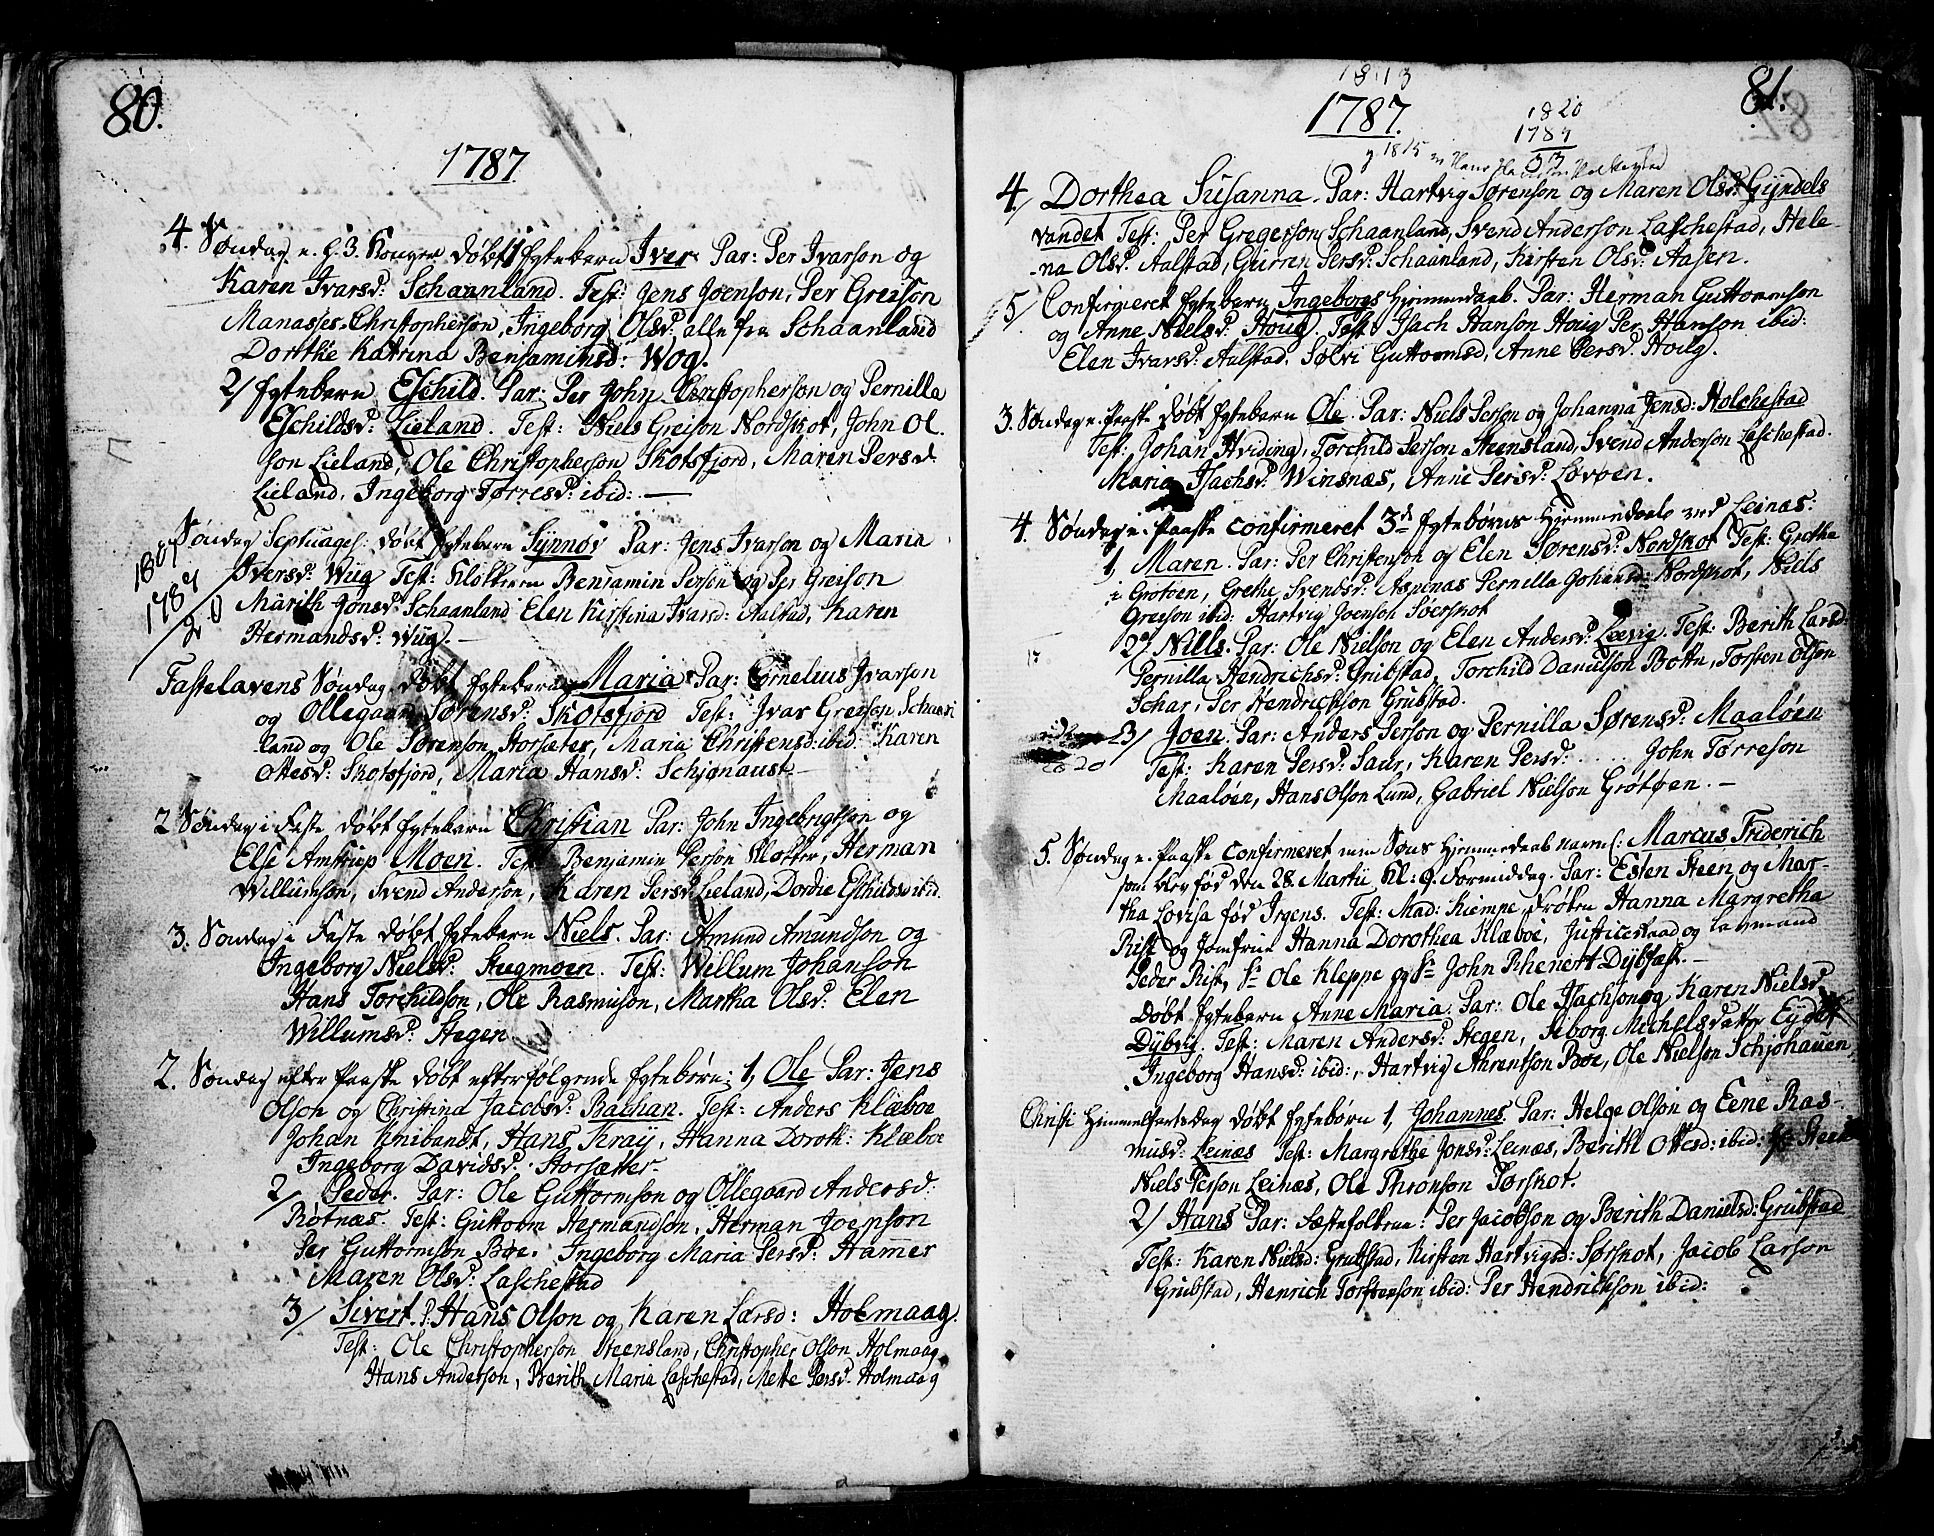 80.
1787
4. Søndag e. H. 3. Konger døbt 1 Ægtebarn Iver. Par: Per Ivarson og
Karen Ivarsd: Schaanland. Test: Jens Joenson, Per Greison
Manasses Christopherson, Ingeborg Olsd: alle fra Schaanland
Dorthe Katrina Benjaminsd: Wog.
2/ Ægtebarn Eschild. Par: Per John Christopherson og Pernilla
Eschildsd: Lieland. Test: Niels Greison Nordskot, John Ol
son Lieland, Ole Christopherson Skotsfjord, Maren Persd:
Lieland, Ingeborg Torresd: ibid: —
Søndag Septuages: døbt Ægtebarn Synnøv Par: Jens Ivarson og Maria
Iversd: Wug Test: Klokkeren Benjamin Person og Per Greison
Marith Jonsd: Schaanland Elen Kirstina Ivarsd: Aalstad, Karen
Hermandsd: Wug. —
1807
1787
20
Fastelavens Søndag døbt Ægtebarn Maria Par: Cornelius Ivarson
og Ollegaard Sørensd: Skotsfjord Test: Ivar Greison Schaan
land og Ole Sørenson Storsæter, Maria Christensd: ibid: Karen
Ottesd: Skotsfjord, Maria Hansd: Schjønaust —
2 Søndag i Faste døbt Ægtebarn Christian Par: John Ingebrigtson og
Else Amstrup Moen. Test: Benjamin Person Klokker, Herman
Willumson, Svend Anderson, Karen Persd: Lieland, Dordie Eschildsd: ibid.
3. Søndag i Faste døbt Ægtebarn Niels. Par: Amund Amundson og
Ingeborg Nielsd: Stegmoen. Test: Willum Johanson
Hans Torchildson, Ole Rasmuson, Martha Olsd: Elen
Willumsd: Stegen
2. Søndag efter Paaske døbt efterfølgende Ægtebørn: 1, Ole Par: Jens
Olson og Christina Jacobsd: Bachan. Test: Anders Klæboe
Johan Knibandt, Hans Kraÿ, Hanna Doroth: Klæboe
Ingeborg Davidsd: Storsætter —
2/ Peder. Par: Ole Guttormson og Ollegaard Andersd:
Røtnæs. Test: Guttorm Hermandson, Herman Joenson
Per Guttormson Bøe. Ingeborg Maria Persd: Hammer
Maren Olsd: Laschestad
3/ Sivert. P: Hans Olson og Karen Larsd: Holmaag.
Test: Ole Christopherson Steensland, Christopher Olson Holmaag
Hans Anderson, Berith Maria Laschestad, Mette Persd: Holmaag
81.
1813
1787.
1820
1787
33
4/ Dorthea Susanna. Par: Hartvig Sørenson og Maren Olsd: Gyndels
vandet Test: Per Gregerson Schaanland, Svend Anderson Laschestad, Hele-
na Olsd: Aalstad, Gurren Persd: Schaanland, Kirsten Olsd: Aasen.
5/ Confirmeret Ægtebarn Ingeborgs Hiemmedaab. Par: Herman Guttormson
og Anne Nielsd: Houg. Test: Isach Hanson Houg Per Hanson ibid:
Elen Ivarsd: Aalstad, Sølvi Guttormsd, Anne Persd: Houg.
3. Søndag e. Paaske døbt Ægtebarn Ole. Par: Niels Person og Johanna Jensd: Holchestad
Test: Johan Hviding, Torchild Person Steensland, Svend Anderson Laschestad.
Maria Isachsd: Winsnæs, Anne Persd: Løvøen.
4. Søndag e. Paaske confirmeret 3de Ægtebørns Hiemmedaab ved Leinæs.
1, Maren. Par: Per Christenson og Elen Sørensd: Nordskot Test: Grethe
i Grotøen, Grethe Svendsd: Aspenæs Pernilla Johansd: Nordskot, Niels
Greeson ibid: Hartvig Joenson Søerskot
2, Nills. Par: Ole Nielson og Elen Andersd: Leevig. Test: Berith Larsd:
Pernilla Hendrichsd: Grubstad, Torchild Danielson Botn, Torsten Olson
Schar, Per Hendrichson Grubstad.
3/ Joen. Par: Anders Person og Pernilla Sørensd: Maaløen
Test: Karen Persd: Saur, Karen Persd: ...... John Torreson
Maaløen, Hans Olson Lund, Gabriel Nielson Grøtøen. —
5. Søndag e. Paaske confirmeret min Søns Hiemmedaab navnl: Marcus Friderich
som blev fød den 28. Martii Kl: 9. Formiddag. Par: Esten Steen og Mar-
tha Lovisa fød Irgens. Test: Mad: Kiempe, Frøken Hanna Margretha
Rist og Jomfrue Hanna Dorothea Klæboe, Justicesraad og Laumand
Peder Rist, Sr Ole Kleppe og Sr John Rhenert Dÿbfæst. —
Døbt Ægtebarn Anne Maria. Par: Ole Isachson og Karen Nielsd:
Dÿbvig. Test: Maren Andersd: Stegen, Siborg Michelsdatter Eÿdet
Ingeborg Hansd: ibid:, Hartvig Ahrentson Bøe, Ole Nielson Schjøhaven,
Christi Himmelfartsdag døbt Ægtebørn 1, Johannes. Par: Helge Olson og Eene Ras-
musd: Leinæs Test: Margrethe Jonsd: Leinæs, Berith Ottesd: ibid:
Niels Person Leinæs, Ole Thronson Sørskot.
2/ Hans Par: Fæstefolkene: Per Jacobson og Berith Danielsd: Grubstad
Test: Karen Nielsd: Grubstad, Kirsten Hartvigsd: Sørskot, Jacob Larson
Grubstad, Henrich Torstenson ibid: Per Hendrickson ibid: